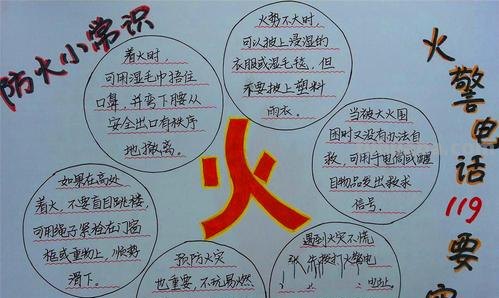 防火小常识
着火时,
可用湿毛巾捂住
口鼻,并弯下腰从
安全出口有秩序
地撤离。
火势不大时,
可以披上浸湿的
衣服或湿毛毯,但
不要披上塑料
雨衣。
当被大火围
困时又没有办法自
救,可用手电筒或醒
目物品发出求救
信号。
如果在高处
着火,不要盲目跳楼,
可用绳子紧栓在门窗
框或重物上,顺势
滑下。
火
预防火灾
也重要,不玩易燃
遇到火灾不慌
张,先拨打火警电
地址。
火警电话119要